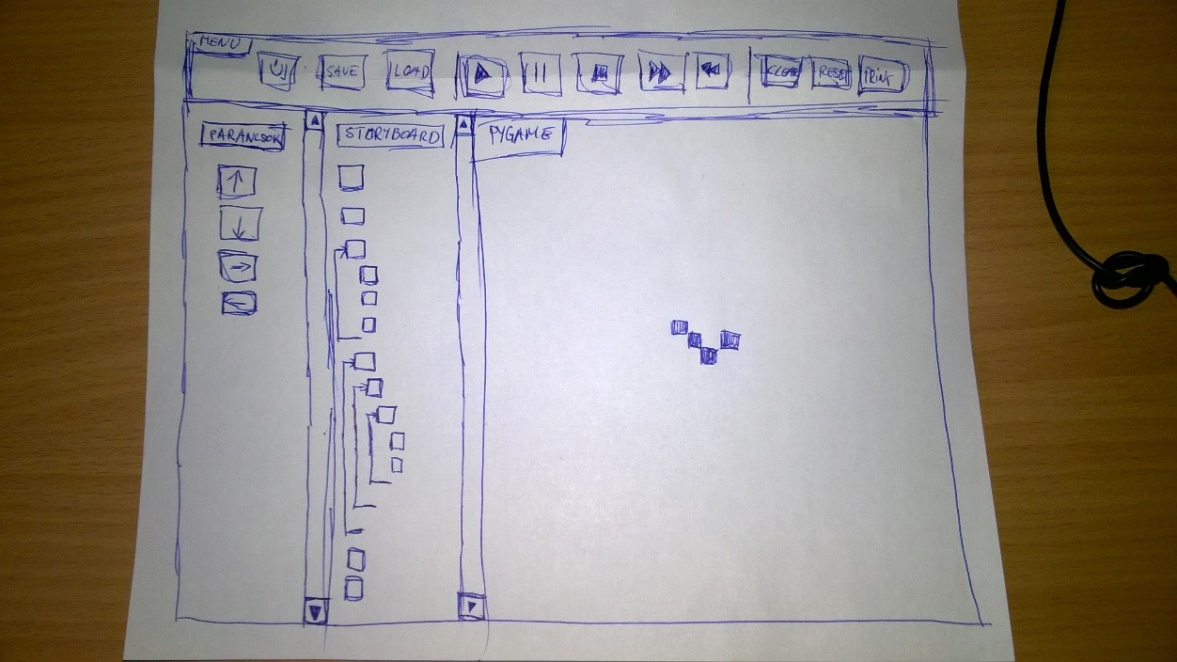 MENU
SAVE LOAD CLEAR RESET PRINT
PARANCSOK STORYBOARD PYGAME